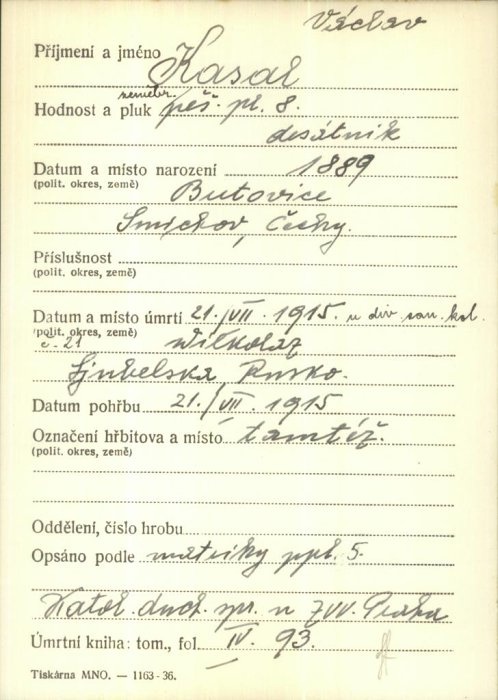 Václav
Příjmení a jméno Kasal
zeměbr.
Hodnost a pluk pěš. pl. 8.
desátník
Datum a místo narození 1889
(polit. okres, země) Butovice
Smichov, Čechy.
Příslušnost
(polit. okres, země)
Datum a místo úmrtí 21./VII. 1915. u div. san. kol.
(polit. okres, země)
č. 21 Wilkolaz
Ljubelska, Rusko.
Datum pohřbu 21./VII. 1915
Označení hřbitova a místo tamtéž.
(polit. okres, země)
Oddělení, číslo hrobu
Opsáno podle matriky ppl. 5.
Katol. duch. spr. u ZVV. Praha
Úmrtní kniha: tom., fol. IV. 93.
Tiskárna MNO. — 1163-36.